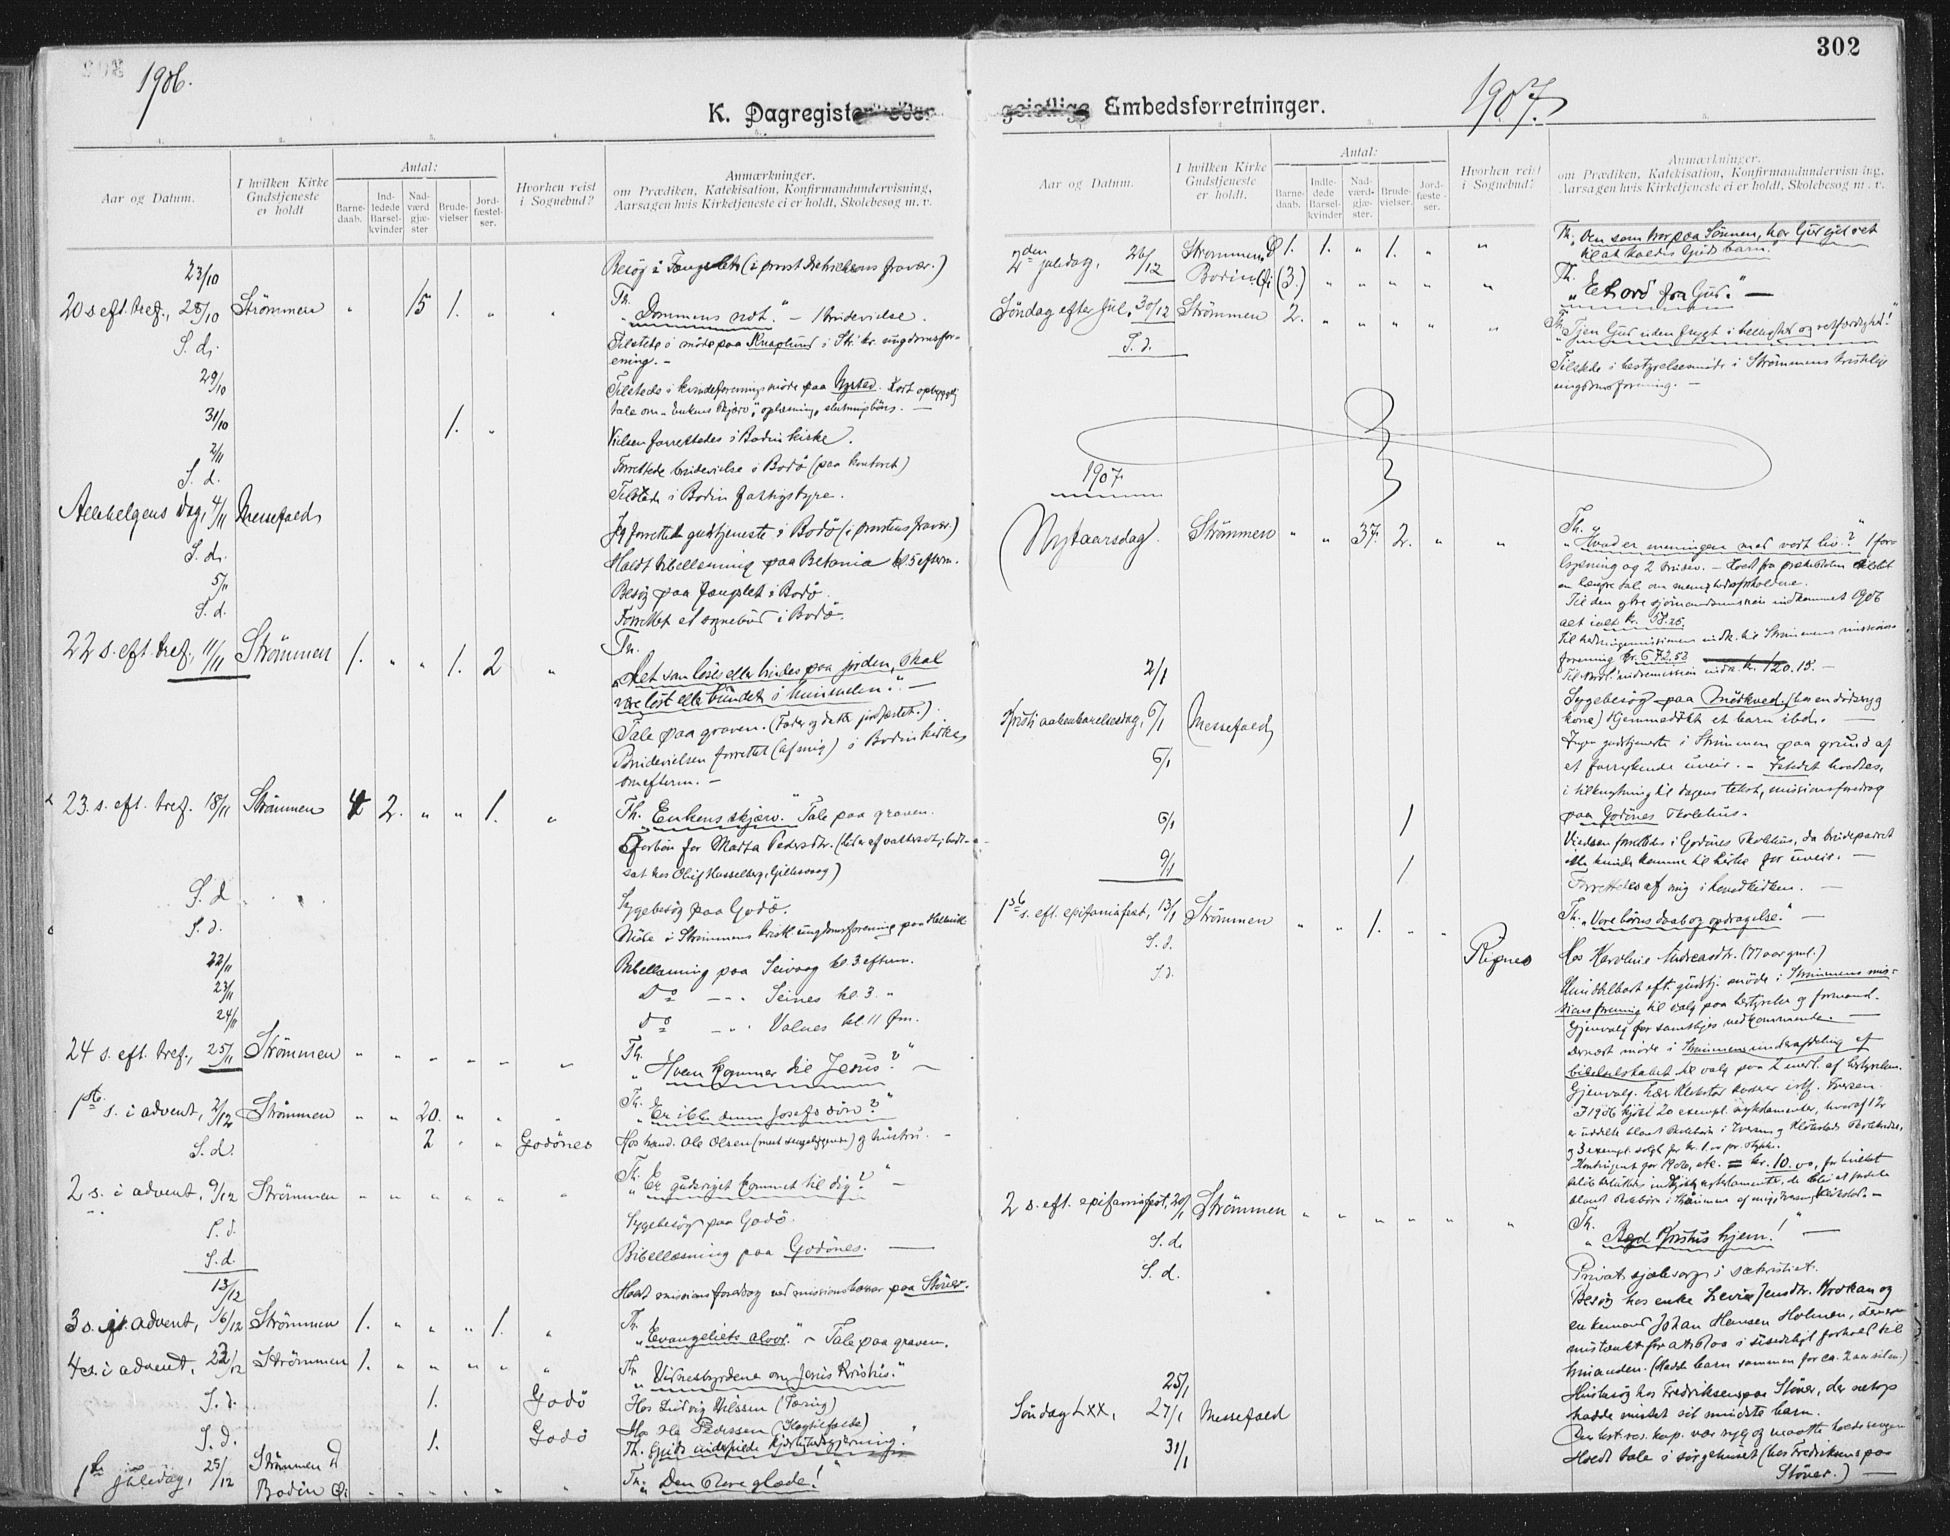 1906.
K. Dagregister eller
1.
2.
3.
4.
5.
Aar og Datum.
I hvilken Kirke Gudstjeneste er holdt
Antal:
Barne-daab.
Ind-ledede Barsel-kvinder
Nad-værd gjæ-ster
Brude-vielser
Jord-fæstel-ser.
Hvorhen reist i Sognebud?
Anmærkninger.
om Prædiken, Katekisation, Konfirmandundervisning,
Aarsagen hvis Kirketjeneste ei er holdt, Skolebesøg m. v.
23/10 Besøg i Fængslet (i provst Dietrichsons fravær.)
20 s. eft. tref., 28/10 Strömmen " 15 1. " " Th.
"Dommens nøt." – 1 brudevielse.
S. d. Tilstede i møde paa Knaplund i Str. kr. ungdomsfor-
ening. –
29/10 Tilstede i kvindeforeningsmøde paa Nysted. Kort opbyggelig
tale om "Enkens skjærv", oplæsning, slutningsbøn. –
31/10 1. " Vielsen forrettedes i Bodin kirke.
2/11 Forrettede brudevielse i Bodö (paa kontoret)
S. d. Tilstede i Bodin fattigstyre.
Allehelgens dag, 4/11 Messefald
Jeg forrettede gudstjeneste i Bodö (i provstens fravær.)
S. d. Holdt bibellæsning paa Betania kl. 5 efterm.
5/11 Besøg paa fængslet i Bodö.
S. d. Forrettet et sognebud i Bodö.
22 s. eft. tref., 11/11 Strömmen 1. " " 1. 2 " Th.
"Det som løses eller bindes paa jorden, skal
være løst eller bundet i himmelen." –
Tale paa graven. (Fader og datter jordfæstet.)
Brudevielsen forrettet (af mig) i Bodin kirke,
om efterm. –
23. s. eft. tref. 18/11 Strömmen 4 2. " " 1. " Th. "Enkens skjærv." Tale paa graven.
Forbön for Marta Pedersdtr. (lider af vattersot; bosat hos Oluf Hasselberg, Gillesvaag)
S. d. Sygebesøg paa Godö.
S. d. Møde i Strømmens kristl. ungdomsforening paa
22/11 Bibellæsning paa Seivaag kl. 3 efterm.
23/11 Do – " Seines kl. 3. "
24/11 Do – " Valnes kl. 11 fm.
24 s. eft. tref., 25/11 Strömmen " " " " " " Th.
"Hvem kommer til Jesus?" –
1ste s. i advent, 2/12 Strömmen " " 20. " " " Th.
"Er ikke denne Josefs søn?"
S. d. 2 " " Godönes Hos hand. Ole Olsen (mest sengeliggende) og hustru. –
2 s. i advent, 9/12 Strömmen " " " " " " Th.
"Er gudsriget kommet til dig?" –
S. d. Sygebesøg paa Godö.
S. d. Bibellæsning paa Godönes. –
13/12 Holdt missionsforedrag ved missionsbasar paa Stöver.
3 s. i advent, 16/12 Strömmen 1. " " " 1. " Th.
"Evangeliets alvor." – Tale paa graven.
4 s. i advent, 23/12 Strömmen 1. " " " " " Th.
"Vidnesbyrdene om Jesus Kristus."
S. d. 1. Godö Hos Ludvig Nilssen (Tæring)
S. d. 1. Godö Hos Ole Pedersen
Th. Guds uindskrænkede kjærlighedsgjerning."
1ste juledag, 25/12 Strömmen
Bodin " " " " " " Th. "Den store glæde!"
302
geistlige Embedsforretninger.
1907.
Aar og Datum.
I hvilken Kirke Gudstjeneste er holdt.
Antal:
Barne-daab.
Indle-dede Barsel-kvinder
Nad-værd-gjæ-ster.
Brude-vielser.
Jord-fæste-ser.
Hvorhen reist i Sognebud?
Anmærkninger.
om Prædiken, Katekisation, Konfirmandundervisning,
Aarsagen hvis Kirketjeneste ei er holdt, Skolebesøg m. v.
2den juledag, 26/12 Strømmen 1. 1. " 1. " " Th. "Den som tror paa Sönnen, har Gud givet ret
til at kaldes Guds barn."
Bodin (3.) " " " " " Th.
"Et ord fra Gud." –
Söndag efter Jul, 30/12 Strömmen 2. " " " " " Th.
"Tjen Gud uden frygt i hellighed og retfærdighed!"
S. d. Tilstede i bestyrelsesmøde i Strömmens kristelige
ungdomsforening. –
1907
Nytaarsdag. Strömmen " " 37. 2. " " Th.
"Hvad er meningen med vort liv?" 1 for-
lovning og 2 bruder. – Læst fra prædikestolen
en længre tale om menighedsforholdene.
Til den ydre sjömandsmission indkommet 1906
alt ialt kr. 38.25.
Til hedningemissionen indk. til Strømmens missions-
forening kr. 672.52
Til indremission indk. kr. 120.15. –
2/1 Sygebesøg paa Mörkved (hos en dödssyg
kone) Hjemmedöbt et barn ibd. –
Kristi aabenbarelsesdag, 6/1 Messefald
Ingen gudstjeneste i Strömmen paa grund af
et forrykende uveir. –
6/1 Istedet holdtes,
i tilknytning til dagens tekst, missionsforedrag
paa Godönes skolehus.
6/1 1 Vielsen forrettedes i Godönes skolehus, da brudeparret
ikke kunde komme til kirke for uveir. –
9/1 1 Forrettedes af mig i hovedkirken. –
1ste s. eft. epifaniafest, 13/1 Strömmen " " 1. " " Th. "Vore börns daab og opdragelse." –
S. d. Ripnes Hos Karoline Andreasdtr. (77 aar gml.)
S. d. Umiddelbart eft. gudstj. møde i Strømmens mis-
sionsforening til valg paa bestyrelse og formand.
Gjenvalg for samtliges vedkommende. –
Dernæst møde i Strømmens underafdeling af
bibelselskabet til valg paa 2 medl. af bestyrelsen.
Gjenvalg:
I 1906 kjøbt 20 exempl. nytestamenter, hvoraf 12
er uddelte blant skolebørn i Iversen og
og 3 exempl. solgt for kr. 1.00 pr. stykke.
Kontingent for 1906, etc. = kr. 10.00, for hvilket
2 s. eft. epifaniafest, 20/1 Strömmen " " " " " " Th.
"Byd Kristus hjem!" –
S. d. Privat sjælesorg i sakristiet.
S. d. Besög hos enke Levise Jensdtr. og
enkemand Johan Hansen Holmen, der er
mistænkt for at staa i usædeligt forhold til
hinanden. (Hadde barn sammen for ca. 2 aar siden.)
25/1 Husbesøg hos Fredriksens paa Stöver, der netop
hadde mistet sit mindste barn.
Söndag LXX, 27/1 Messefald
Den best. res. kap. var syg og maatte holde sengen
31/1 Holdt tale i sørgehuset (hos Fredriksens paa
Stöver.) –